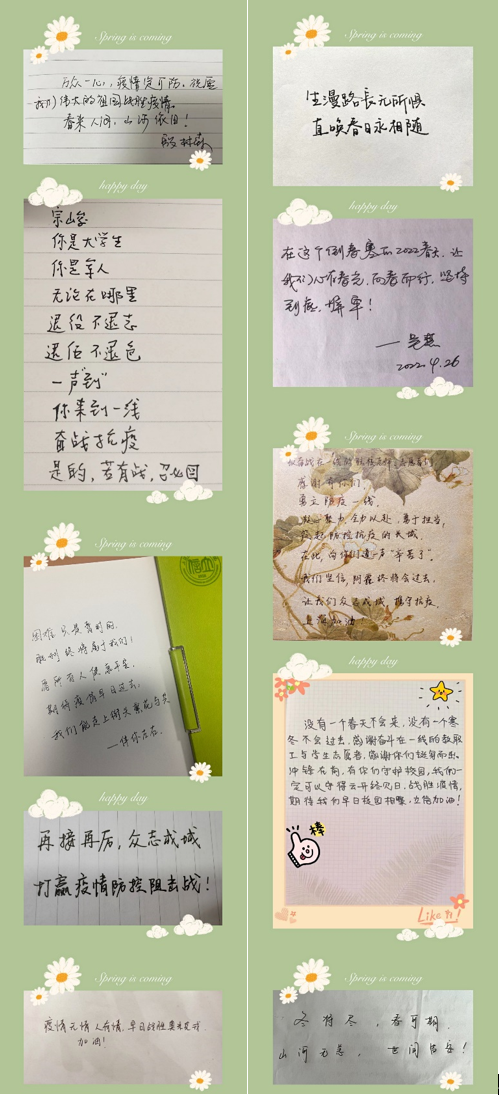 Spring is coming
万众一心，疫情定可防，祝愿
我们伟大的祖国战胜疫情。
春来人间，山河依旧！
happy day
宗山峰
你是大学生
你是军人
无论在哪里
退役不退志
退伍不退色
一声“到”
你来到一线
奋战抗疫
是的，若有战，召必回
Spring is coming
困难只是暂时的
胜利终将属于我们！
愿所有人健康平安
期待疫情早日过去
我们能走上街头赏花与笑
—伴你左右
happy day
再接再厉，众志成城
打赢疫情防控阻击战！
Spring is coming
疫情无情人有情，早日战胜
加油！
Spring is coming
漫路长无所惧
直唤春日永相随
happy day
在这个倒春寒的2022春天，让
我们心有春光，向春而行，坚持
到底，
2022.4.26
Spring is coming
感谢有你们
勇立防疫一线，
凝心聚力，全力以赴，勇于担当，
筑起防控抗疫的长城，
在此，向你们道一声“辛苦了”。
我们坚信，阴霾终将会过去，
让我们众志成城，携守抗疫，
加油！
happy day
没有一个春天不会来，没有一个寒
冬不会过去。感谢奋斗在一线的教职
工与学生志愿者，感谢你们挺身而出、
冲锋在前，有你们守护校园，我们一
定可以守得云开终见日，战胜疫情，
期待我们早日校园相聚，立德加油！
棒
Like it!
Spring is coming
冬将尽，春可期
山河无恙，世间皆安！